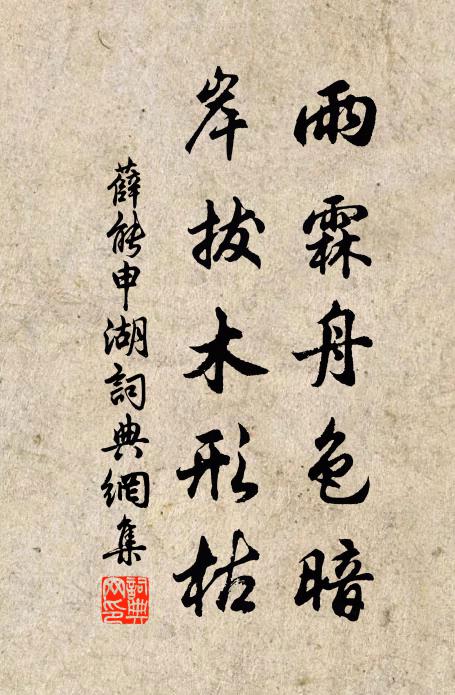 雨霖舟色暗
岸拔木形枯
薛能申湖詞典網集
詞典網印